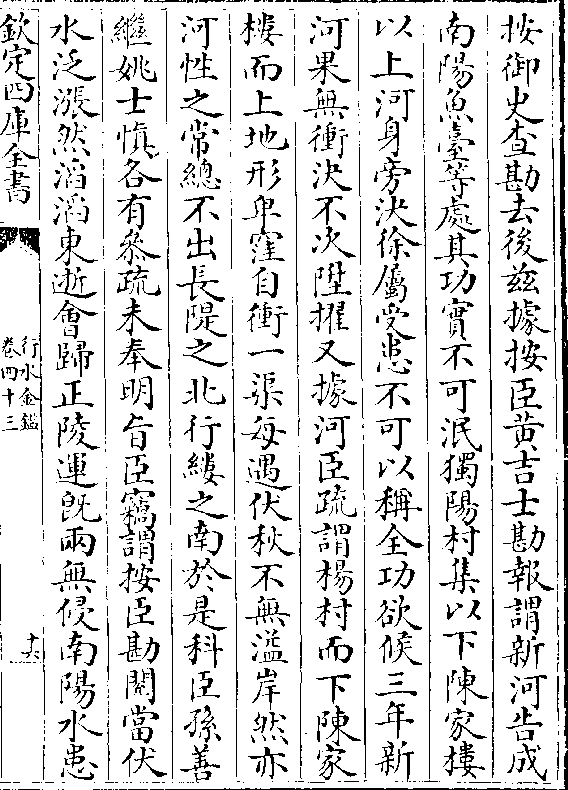 按御史查勘去後兹據按臣黄吉士勘報謂新河告成
南陽魚臺等處其功實不可泯獨陽村集以下陳家樓
以上河身旁決徐屬受患不可以稱全功欲候三年新
河果無衝決不次陞擢又據河臣疏謂楊村而下陳家
樓而上地形卑窪自衝一渠每遇伏秋不無溢岸然亦
河性之常總不出長隄之北行縷之南於是科臣孫善
繼姚士慎各有叅疏未奉明旨臣竊謂按臣勘閱當伏
水泛漲然滔滔東逝會歸正陵運旣兩無侵南陽水患
欽定四庫全書
行水金鑑
卷四十三
十六